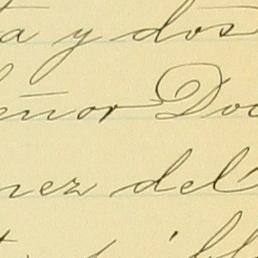 ta y dos
eñor Doc
nez del